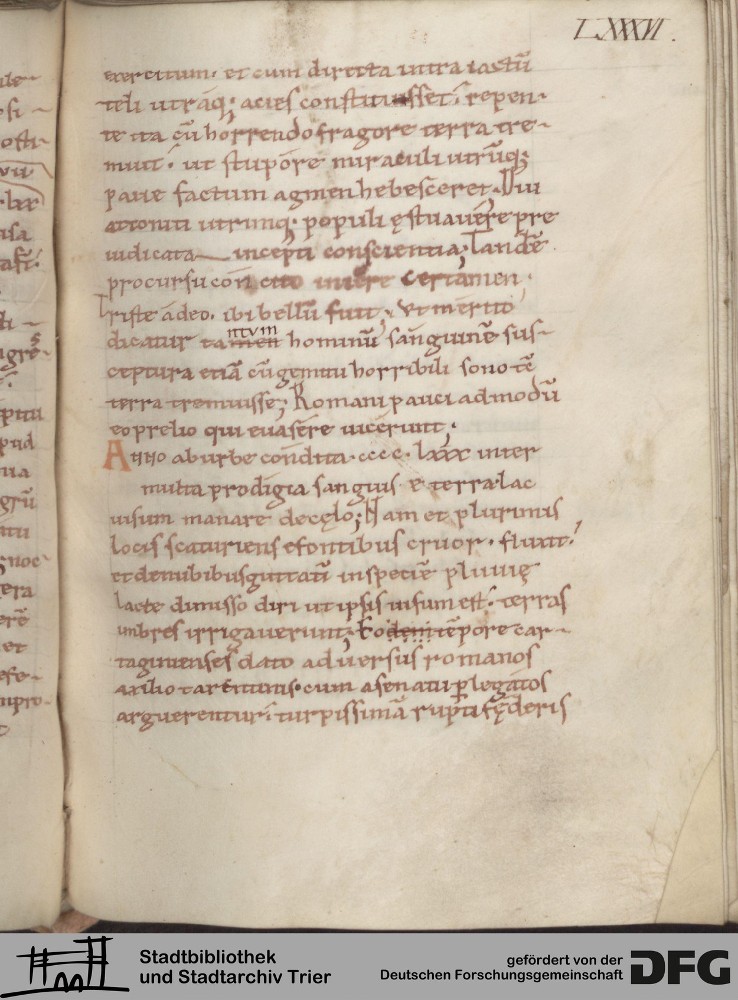 LXXXVI.
exercitum. et cum directa intra iactū
teli utraq; acies constitisset. repen-
te ita cū horrendo fragore terra tre-
muit. ut stupore miraculi utrūq;
pavefactum agmen hebesceret; Diu
attoniti utrinq; populi ęstuavere pre
iudicata incepti conscientia; Tandē
procursu con cito iniere certamen.
Triste adeo. ibi bellū fuit; Ut merito
dicatur tantum hominū sanguinē sus-
ceptura etiā cū gemitu horribili sono tē
terra tremuisse; Romani pauci admodū
eo prelio qui evasere vicerunt;
Anno ab urbe condita. cccc. lxxx inter
multa prodigia sanguis e terra lac
visum manare de cęlo; Nam et plurimis
locis scaturiens e fontibus cruor. fluxit.
et de nubibus guttatī in speciē pluvię
lacte dimisso diri ut ipsis visum est. terras
imbres irrigaverunt; Eodem tēpore car-
taginienses dato adversus romanos
auxilio tarentinis. cum a senatu p̄ legatos
arguerentur. turpissimā rupti fęderis
Stadtbibliothek
und Stadtarchiv Trier
gefördert von der
Deutschen Forschungsgemeinschaft
DFG